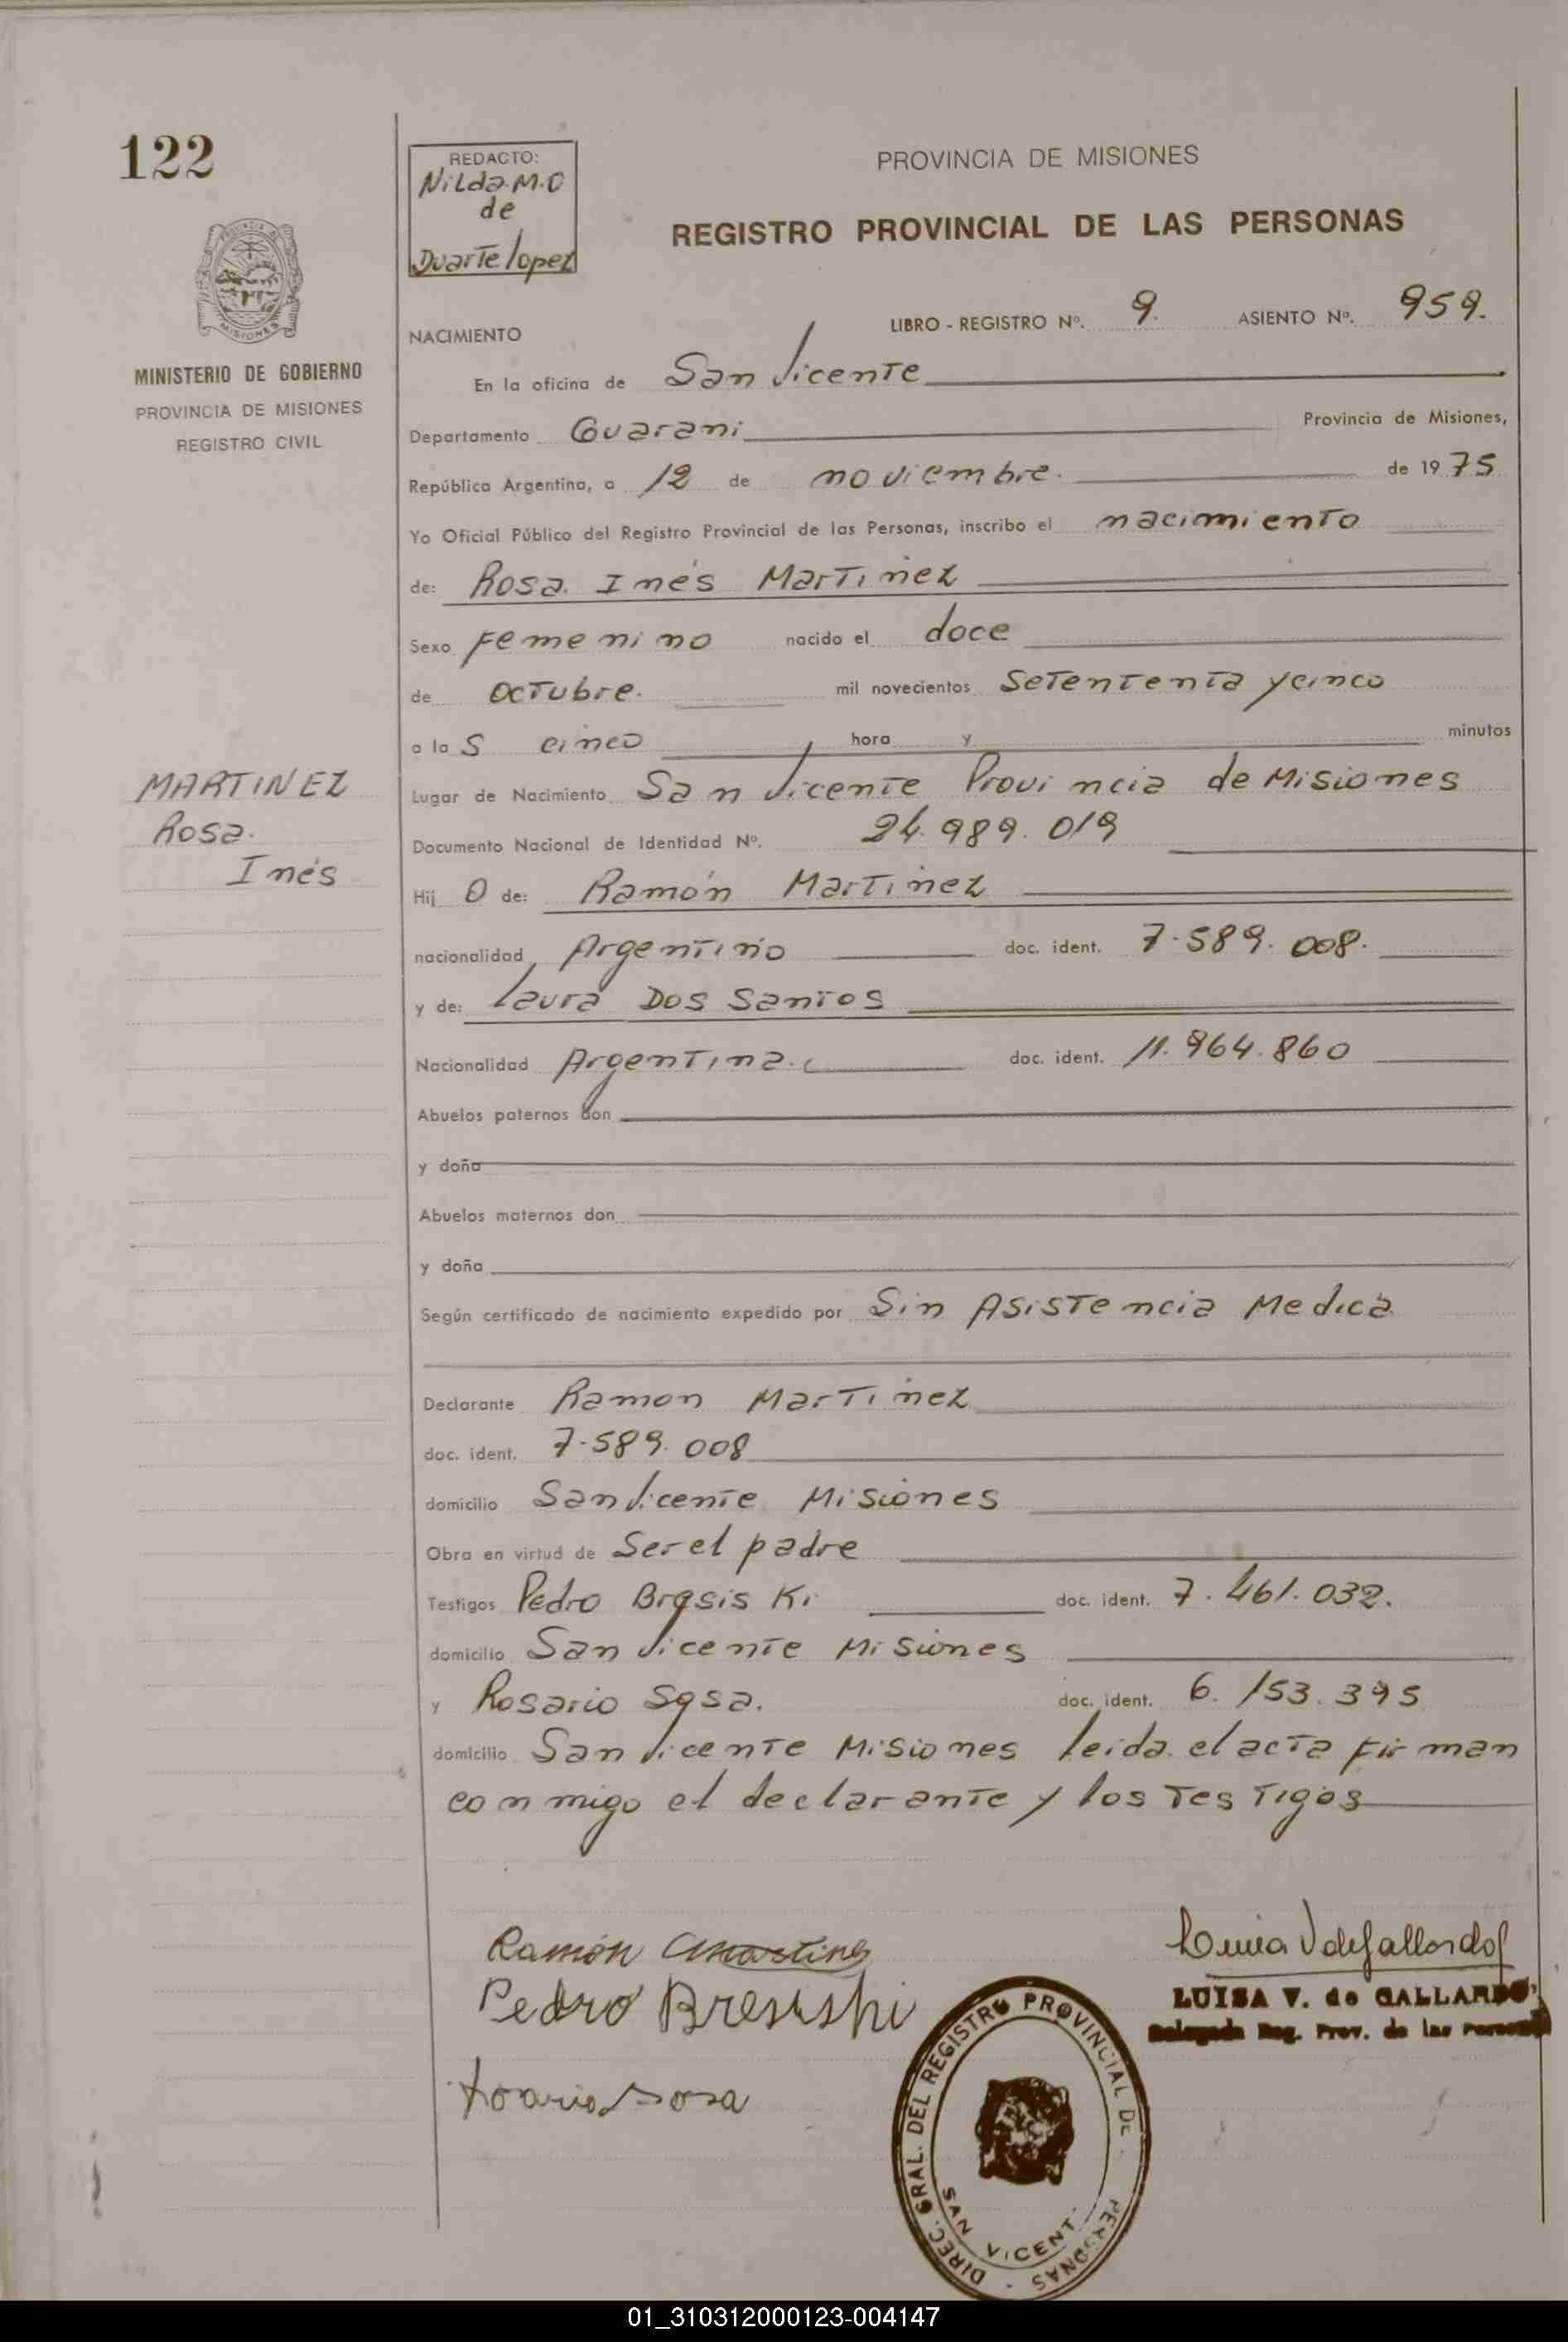 122
REDACTO:
Nilda.M.O
de
Duarte lopez
PROVINCIA DE MISIONES
REGISTRO PROVINCIAL DE LAS PERSONAS
MISIONES
MINISTERIO DE GOBIERNO
PROVINCIA DE MISIONES
REGISTRO CIVIL
NACIMIENTO
LIBRO - REGISTRO Nº. 9. ASIENTO Nº. 959.
En la oficina de San Vicente
Departamento Guarani Provincia de Misiones,
República Argentina, a 12 de noviembre. de 19 75
Yo Oficial Público del Registro Provincial de las Personas, inscribo el nacimiento
de: Rosa. Inés Martinez
Sexo Femenino nacido el doce
de octubre. mil novecientos Setententa y cinco
a la S cinco hora y minutos
MARTINEZ
Rosa.
Inés
Lugar de Nacimiento San Vicente Provincia de Misiones
Documento Nacional de Identidad Nº. 24.989.019
Hij O de: Ramón Martinez
nacionalidad Argentino doc. ident. 7.589.008.
y de: Laura Dos Santos
Nacionalidad Argentina. doc. ident. 11.964.860
Abuelos paternos don
y doña
Abuelos maternos don
y doña
Según certificado de nacimiento expedido por Sin Asistencia Medica
Declarante Ramon Martinez
doc. ident. 7.589.008
domicilio San Vicente Misiones
Obra en virtud de Ser el padre
Testigos Pedro Brasis Ki doc. ident. 7.461.032.
domicilio San Vicente Misiones
y Rosario Sosa. doc. ident. 6.153.395
domicilio San Vicente Misiones leida el acta firman
conmigo el declarante y los Testigos
Ramón Martinez
Pedro Bresishi
Sosa
LUISA V. de GALLARDO
Delegada Reg. Prov. de las Personas
DIREC. GRAL. DEL REGISTRO PROVINCIAL DE PERSONAS
SAN VICENT.
01_310312000123-004147